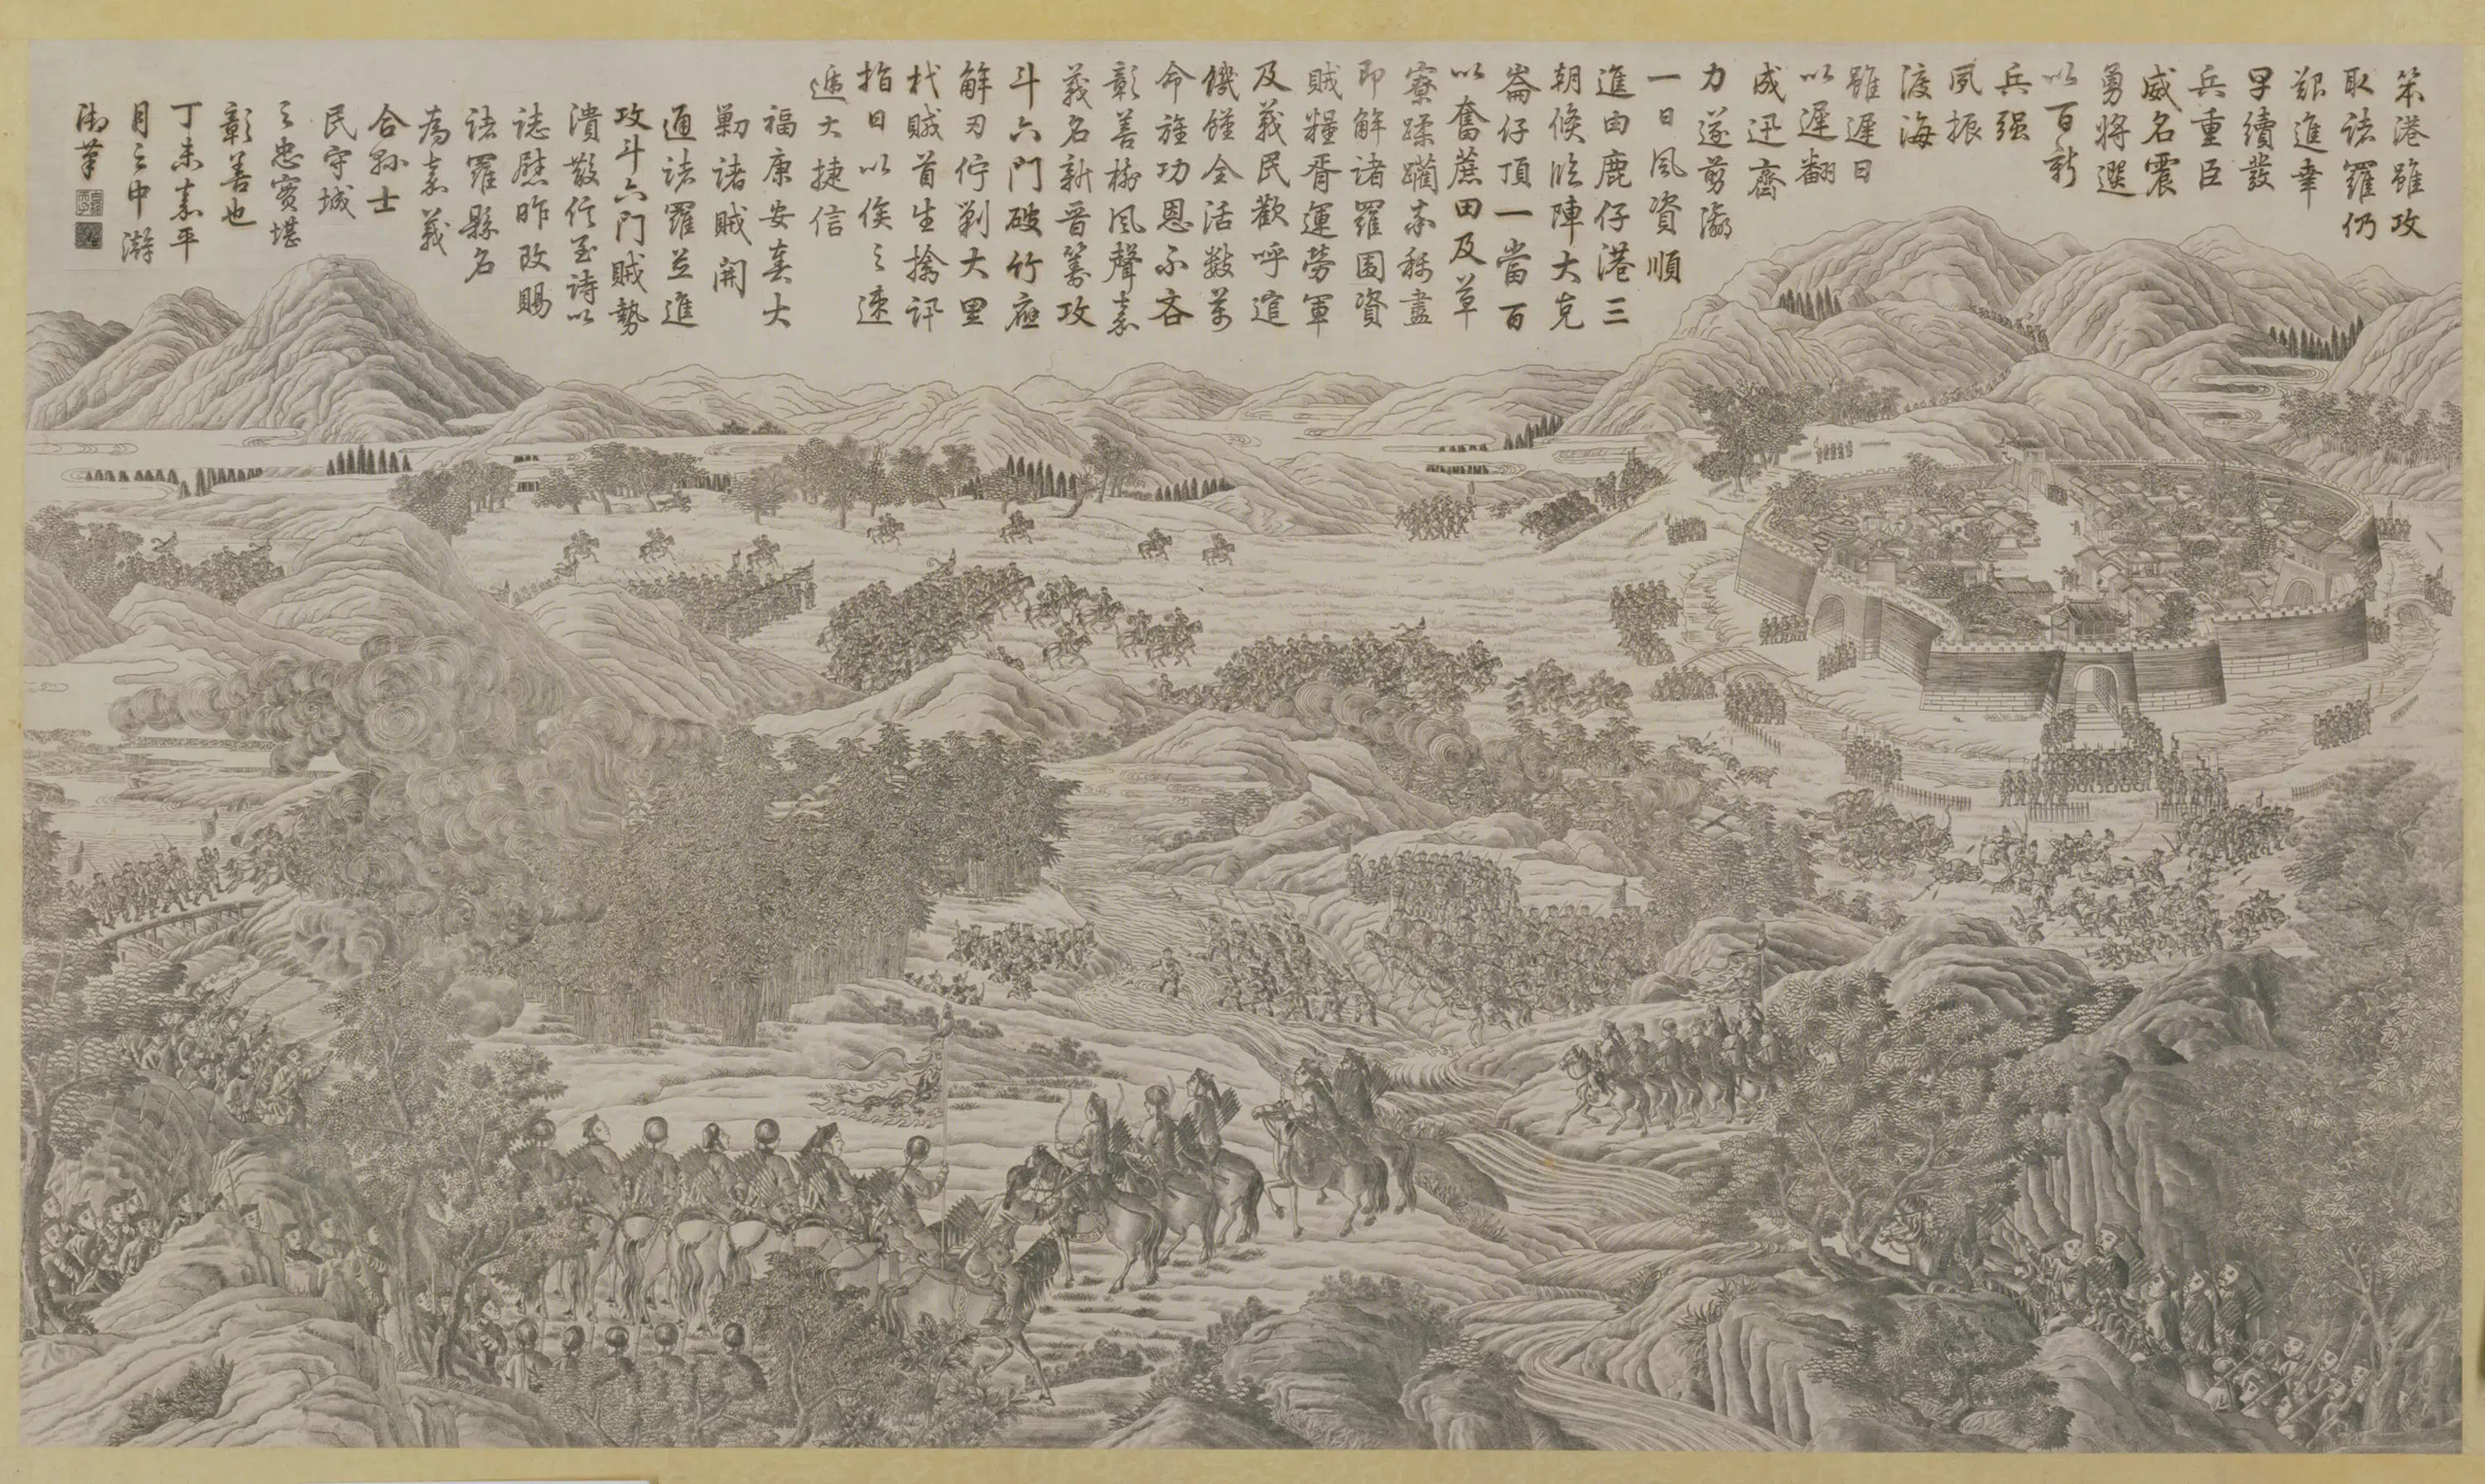 笨港雖攻
取諸羅仍
艱進幸
早續發
兵重臣
威名震
勇將選
以百新
兵强
夙振
渡海
雖遲日
以遲翻
成迅齋
力遂剪瀛
一日風資順
進由鹿仔港三
朝候臨陣大克
崙仔頂一當百
以奮蔗田及草
寮蹂躪奔盡
即解諸羅圍資
賊糧胥運勞軍
及義民歡呼逭
饑饉全活數萬
命旌功恩不吝
彰善樹風聲嘉
義名新晋籌攻
斗六門破竹應
解刃佇剿大里
杙賊首生擒訊
指日以俟之速
遞大捷信
福康安奏大
剿諸賊開
通諸羅並進
攻斗六門賊勢
潰散信至詩以
誌慰昨改賜
諸羅縣名
為嘉義
合縣士
民守城
之忠實堪
彰善也
丁未嘉平
月之中澣
御筆